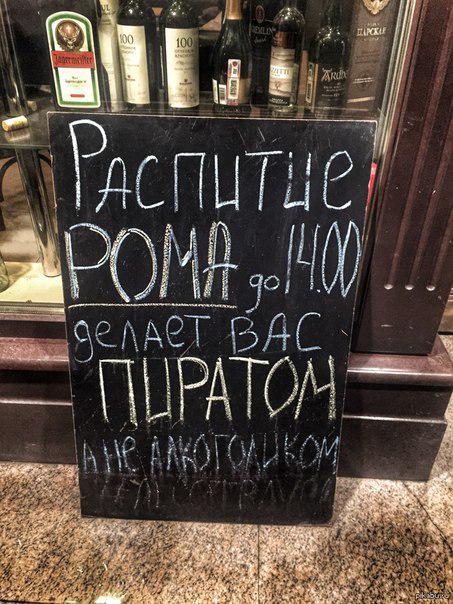 Jägermeister
100
100
ЦАРСКАЯ
Распитие
РОМА до 14.00
делает ВАС
ПИРАТОМ
А НЕ АЛКОГОЛИКОМ
pikabu.ru